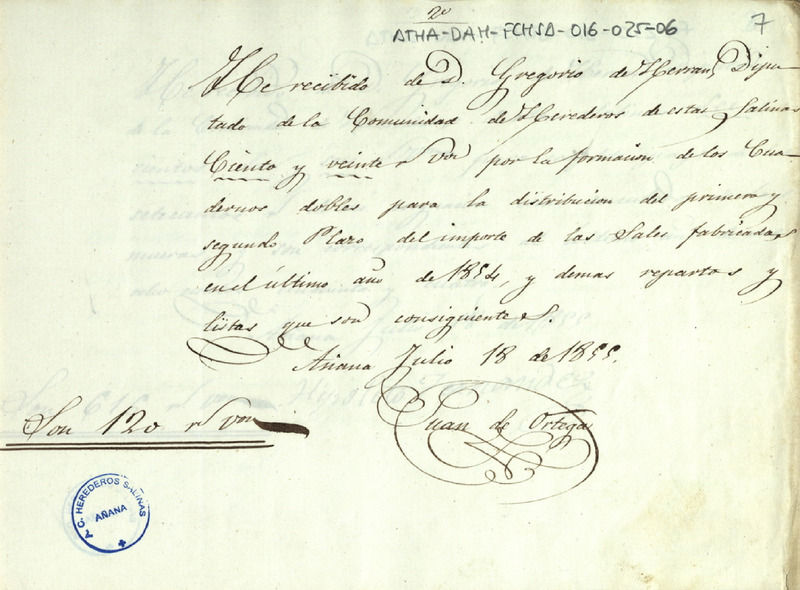 2º
ATHA-DAH-FCHSA-016-025-06
7
He recibido de D. Gregorio de Herran, Dipu
tado de la Comunidad de Herederos de estas Salinas
Ciento y veinte rs von por la formacion de los Cua
dernos dobles para la distribucion del primero y
segundo Plazo del importe de las Sales fabricadas
en el último año de 1854, y demas repartos y
listas que son consiguientes.
Añana Julio 18 de 1855.
Juan de Ortega
Son 120 rs von
A. C. HEREDEROS SALINAS
AÑANA